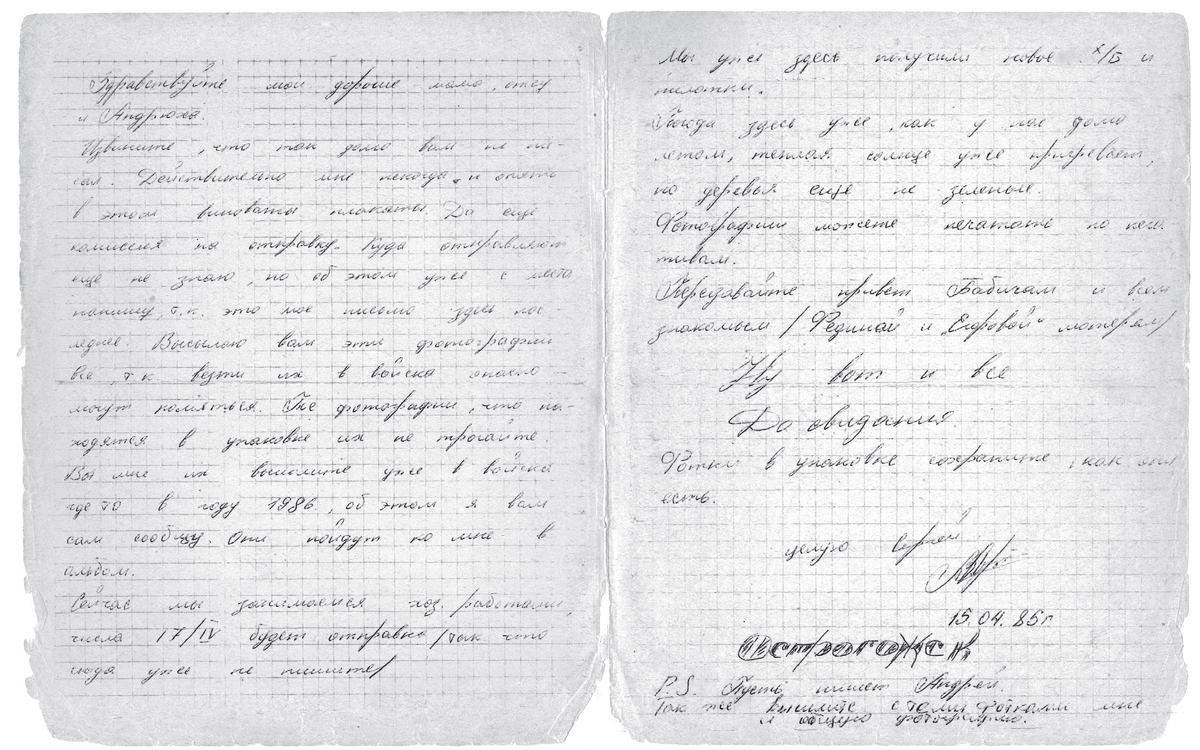 Здравствуйте мои дорогие мама, отец
и Андрюха.
Извините, что так долго вам не пи-
сал. Действительно мне некогда, и опять
в этом виноваты плакаты. Да еще
комиссия на отправку. Куда отправляют
еще не знаю, но об этом уже с места
напишу, т.к. это мое письмо здесь пос-
леднее. Высылаю вам эти фотографии
все, т.к. везти их в войска опасно -
могут помяться. Те фотографии, что на-
ходятся в упаковке их не трогайте.
Вы мне их вышлите уже в войска
где то в году 1986, об этом я вам
сам сообщу. Они пойдут ко мне в
альбом.
Сейчас мы занимаемся хоз. работами,
числа 17/IV будет отправка /так что
сюда уже не пишите/
Мы уже здесь получили новое х/б и
пилотки.
Погода здесь уже, как у нас дома
летом, теплая солнце уже пригревает,
но деревья еще не зеленые.
Фотографии можете печатать по нега
тивам.
Передавайте привет Бабичам и всем
знакомым /Рединой и Ефровой" матерям/
Ну вот и все
До свидания.
Фотки в упаковке сохраните, как они
есть.
целую Сергей
15.04.85г
Острогожск
P.S. Пусть пишет Андрей.
Так же вышлите с теми фотками мне
и общую фотографию.